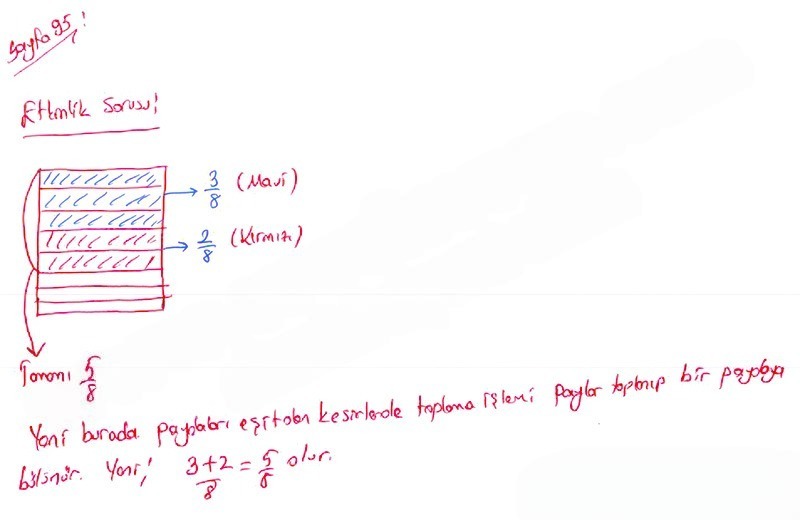 Sayfa 95!
Etkinlik Sorusu!
3/8 (Mavi)
2/8 (Kırmızı)
Tamamı 5/8
Yani burada paydaları eşit olan kesirlerde toplama işlemi paylar toplanıp bir paydaya
bölünür. Yani; 3+2/8 = 5/8 olur.